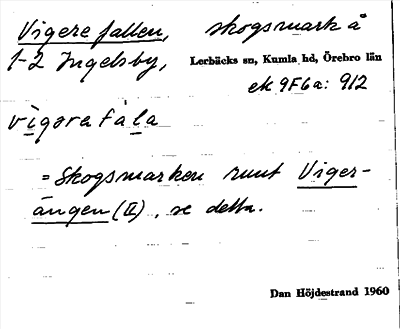 Vigerefallen, skogsmark å
1-2 Ingelsby, Lerbäcks sn, Kumla hd, Örebro län
ek 9F6a: 912
vigərafàla
= Skogsmarken runt Viger-
ängen (II), se detta.
Dan Höjdestrand 1960